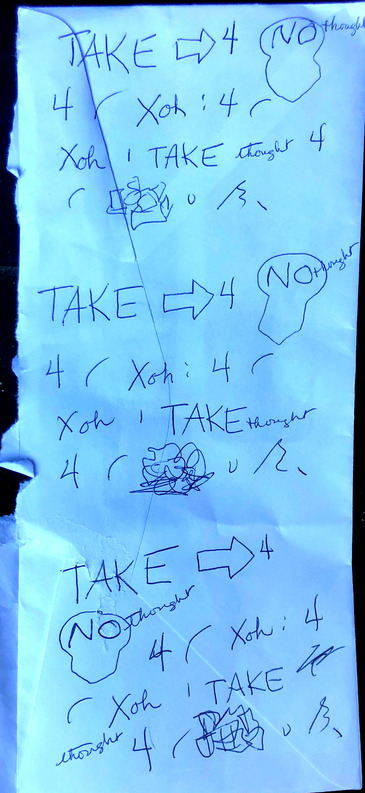 TAKE ⇨ 4 NO thought
4 ( Xoh : 4 (
Xoh ' TAKE thought 4
(
TAKE ⇨ 4 NO thought
4 ( Xoh : 4 (
Xoh ' TAKE thought
4 (
TAKE ⇨ 4
NO thought 4 ( Xoh : 4
( Xoh ' TAKE
thought 4 (